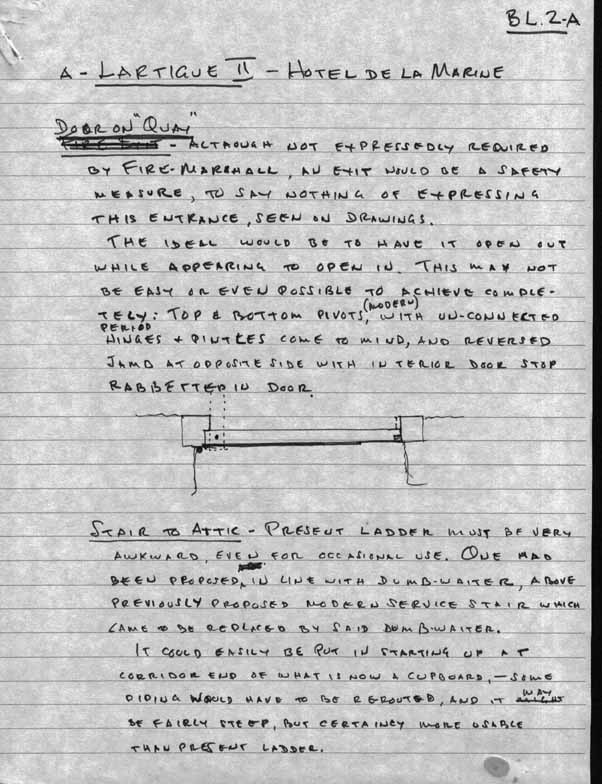 BL.2-A
A - LARTIGUE II - HOTEL DE LA MARINE
DOOR ON "QUAY"
FIRE EXIT - ALTHOUGH NOT EXPRESSEDLY REQUIRED
BY FIRE-MARSHALL, AN EXIT WOULD BE A SAFETY
MEASURE, TO SAY NOTHING OF EXPRESSING
THIS ENTRANCE, SEEN ON DRAWINGS.
THE IDEAL WOULD BE TO HAVE IT OPEN OUT
WHILE APPEARING TO OPEN IN. THIS MAY NOT
BE EASY OR EVEN POSSIBLE TO ACHIEVE COMPLE-
TELY: TOP & BOTTOM PIVOTS, (MODERN) WITH UN-CONNECTED
PERIOD
HINGES & PINTLES COME TO MIND, AND REVERSED
JAMB AT OPPOSITE SIDE WITH INTERIOR DOOR STOP
RABBETTED IN DOOR.
STAIR TO ATTIC - PRESENT LADDER MUST BE VERY
AWKWARD, EVEN FOR OCCASIONAL USE. ONE HAD
BEEN PROPOSED, IN LINE WITH DUMB-WAITER, ABOVE
PREVIOUSLY PROPOSED MODERN SERVICE STAIR WHICH
CAME TO BE REPLACED BY SAID DUMB-WAITER.
IT COULD EASILY BE PUT IN STARTING UP AT
CORRIDOR END OF WHAT IS NOW A CUPBOARD, - SOME
PIPING WOULD HAVE TO BE REROUTED, AND IT MAY
BE FAIRLY STEEP, BUT CERTAINLY MORE USABLE
THAN PRESENT LADDER.